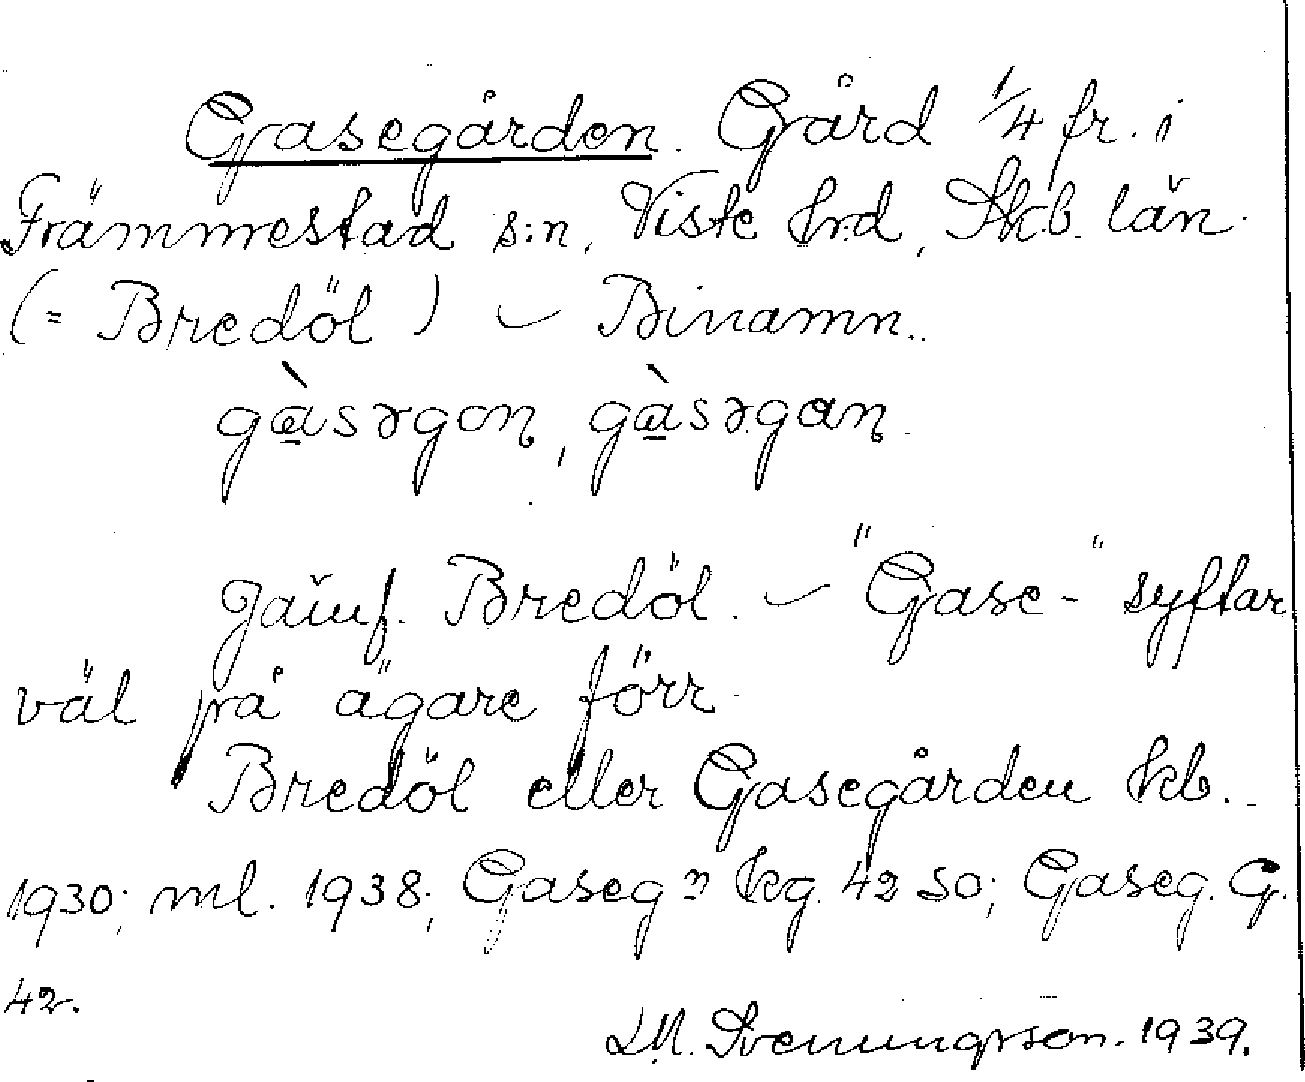 Gasegården. Gård 1/4 fr. i
Främmestad s:n, Viste hrd, Skb. län.
(= Bredöl) – Binamn.
gàsəgɔn̥, gàsəgan̥.
Jämf. Bredöl. – "Gase-" syftar
väl på ägare förr.
Bredöl eller Gasegården kb.
1930; ml. 1938; Gasegn kg. 42 SO; Gaseg. G.
42.
D.M. Svenungsson. 1939.